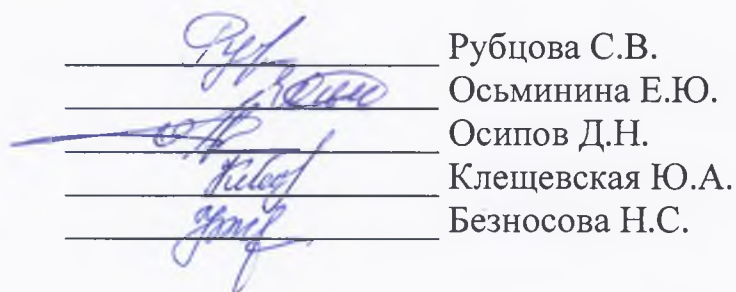 Рубцова С.В.
Осьминина Е.Ю.
Осипов Д.Н.
Клещевская Ю.А.
Безносова Н.С.